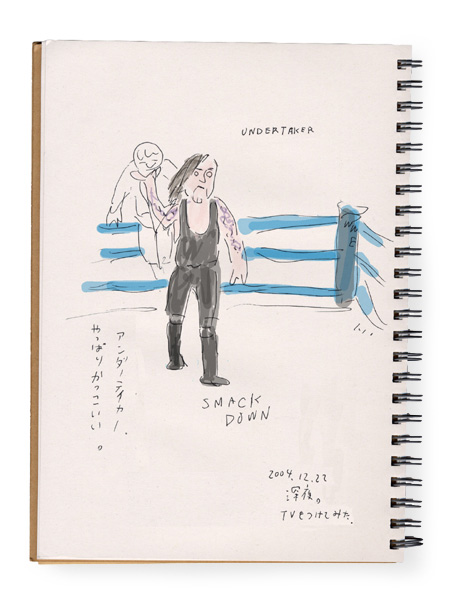 UNDERTAKER
WWE
アンダーテイカー.
やっぱりかっこいい。
SMACK
DOWN
2004.12.22
深夜。
TVをつけてみた.